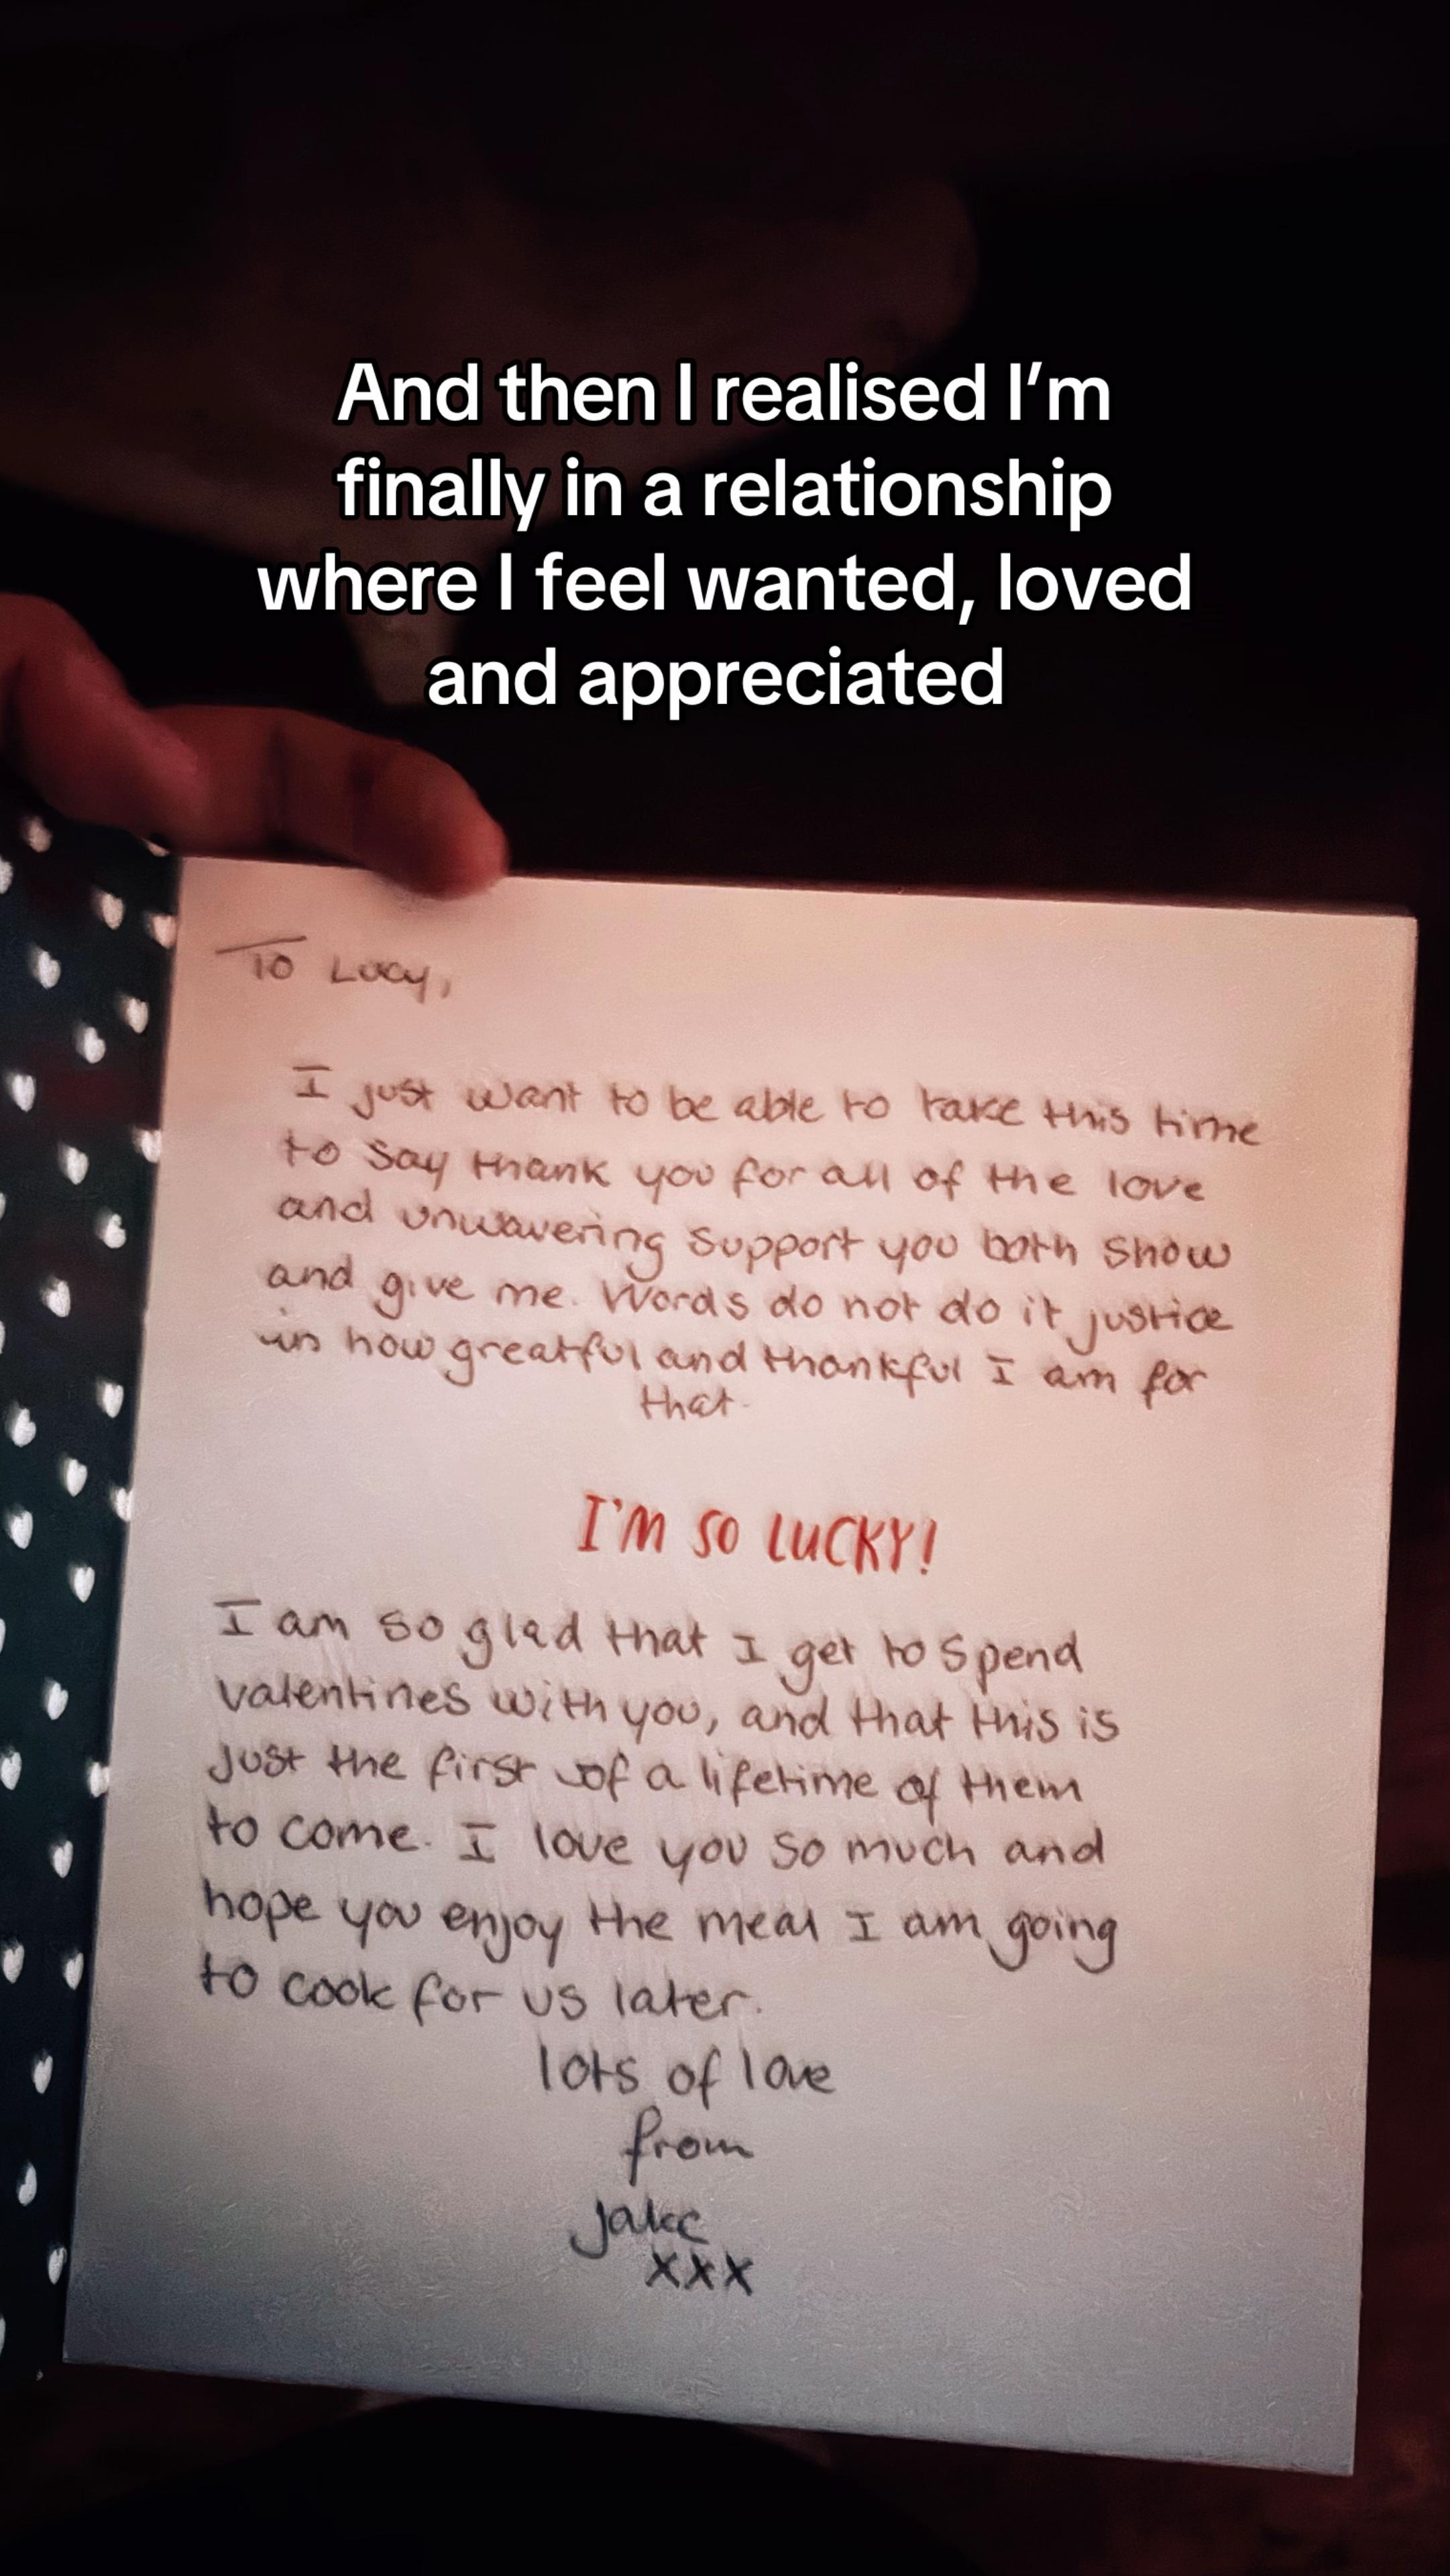 And then I realised I’m
finally in a relationship
where I feel wanted, loved
and appreciated
To Lucy,
I just want to be able to take this time
to say thank you for all of the love
and unwavering support you both show
and give me. Words do not do it justice
in how greatful and thankful I am for
that.
I'M SO LUCKY!
I am so glad that I get to spend
valentines with you, and that this is
just the first of a lifetime of them
to come. I love you so much and
hope you enjoy the meal I am going
to cook for us later.
lots of love
from
Jake
xxx